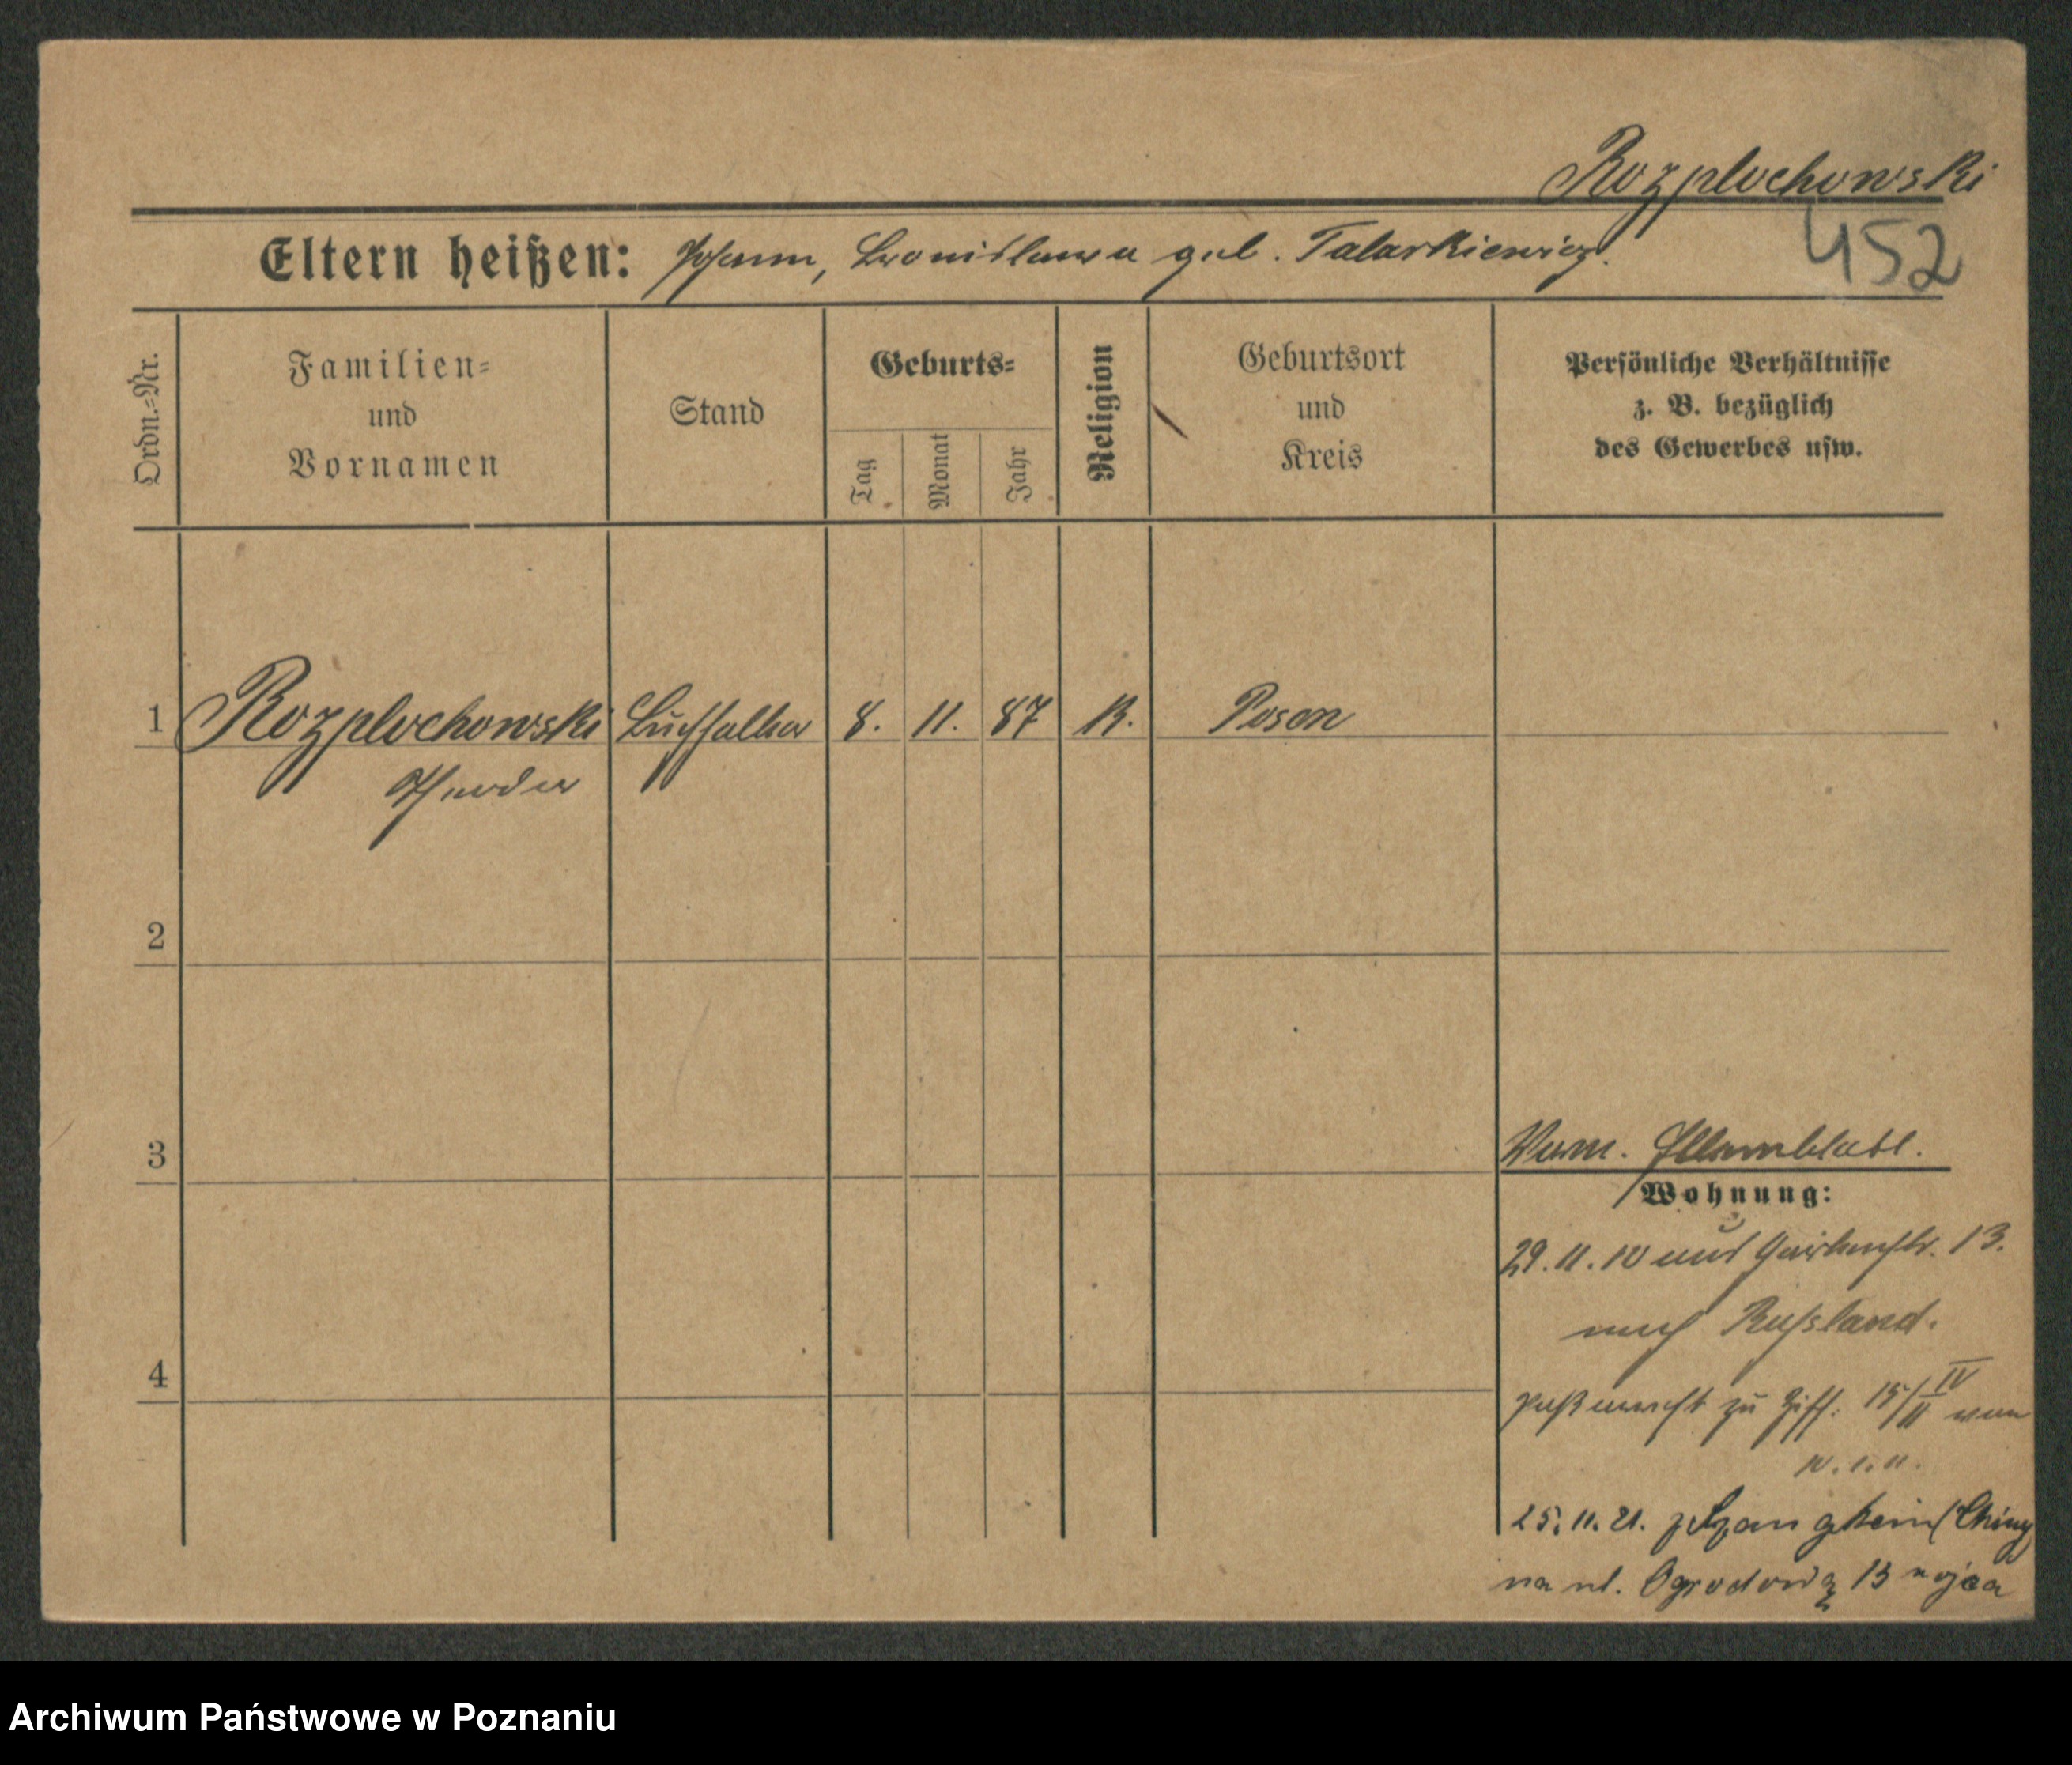 Rozplochowski
452
Eltern heißen: Johann, Bronislawa geb. Talarkiewicz.
Ordn.-Nr.
Familien-
und
Vornamen
Stand
Geburts-
Tag
Monat
Jahr
Religion
Geburtsort
und
Kreis
Persönliche Verhältnisse
z. B. bezüglich
des Gewerbes usw.
1 Rozplochowski Buchhalter 8. 11. 87 K. Posen
Theodor
2
3
Vom. Elternblatt.
Wohnung:
29. 11. 10 aus Gartenstr. 13.
nach Russland.
4
zu Ziff. 15/ IV/II vom
25. 11. 21. z (Chiny)
na ul. Ogrodową 13 ojca
Archiwum Państwowe w Poznaniu